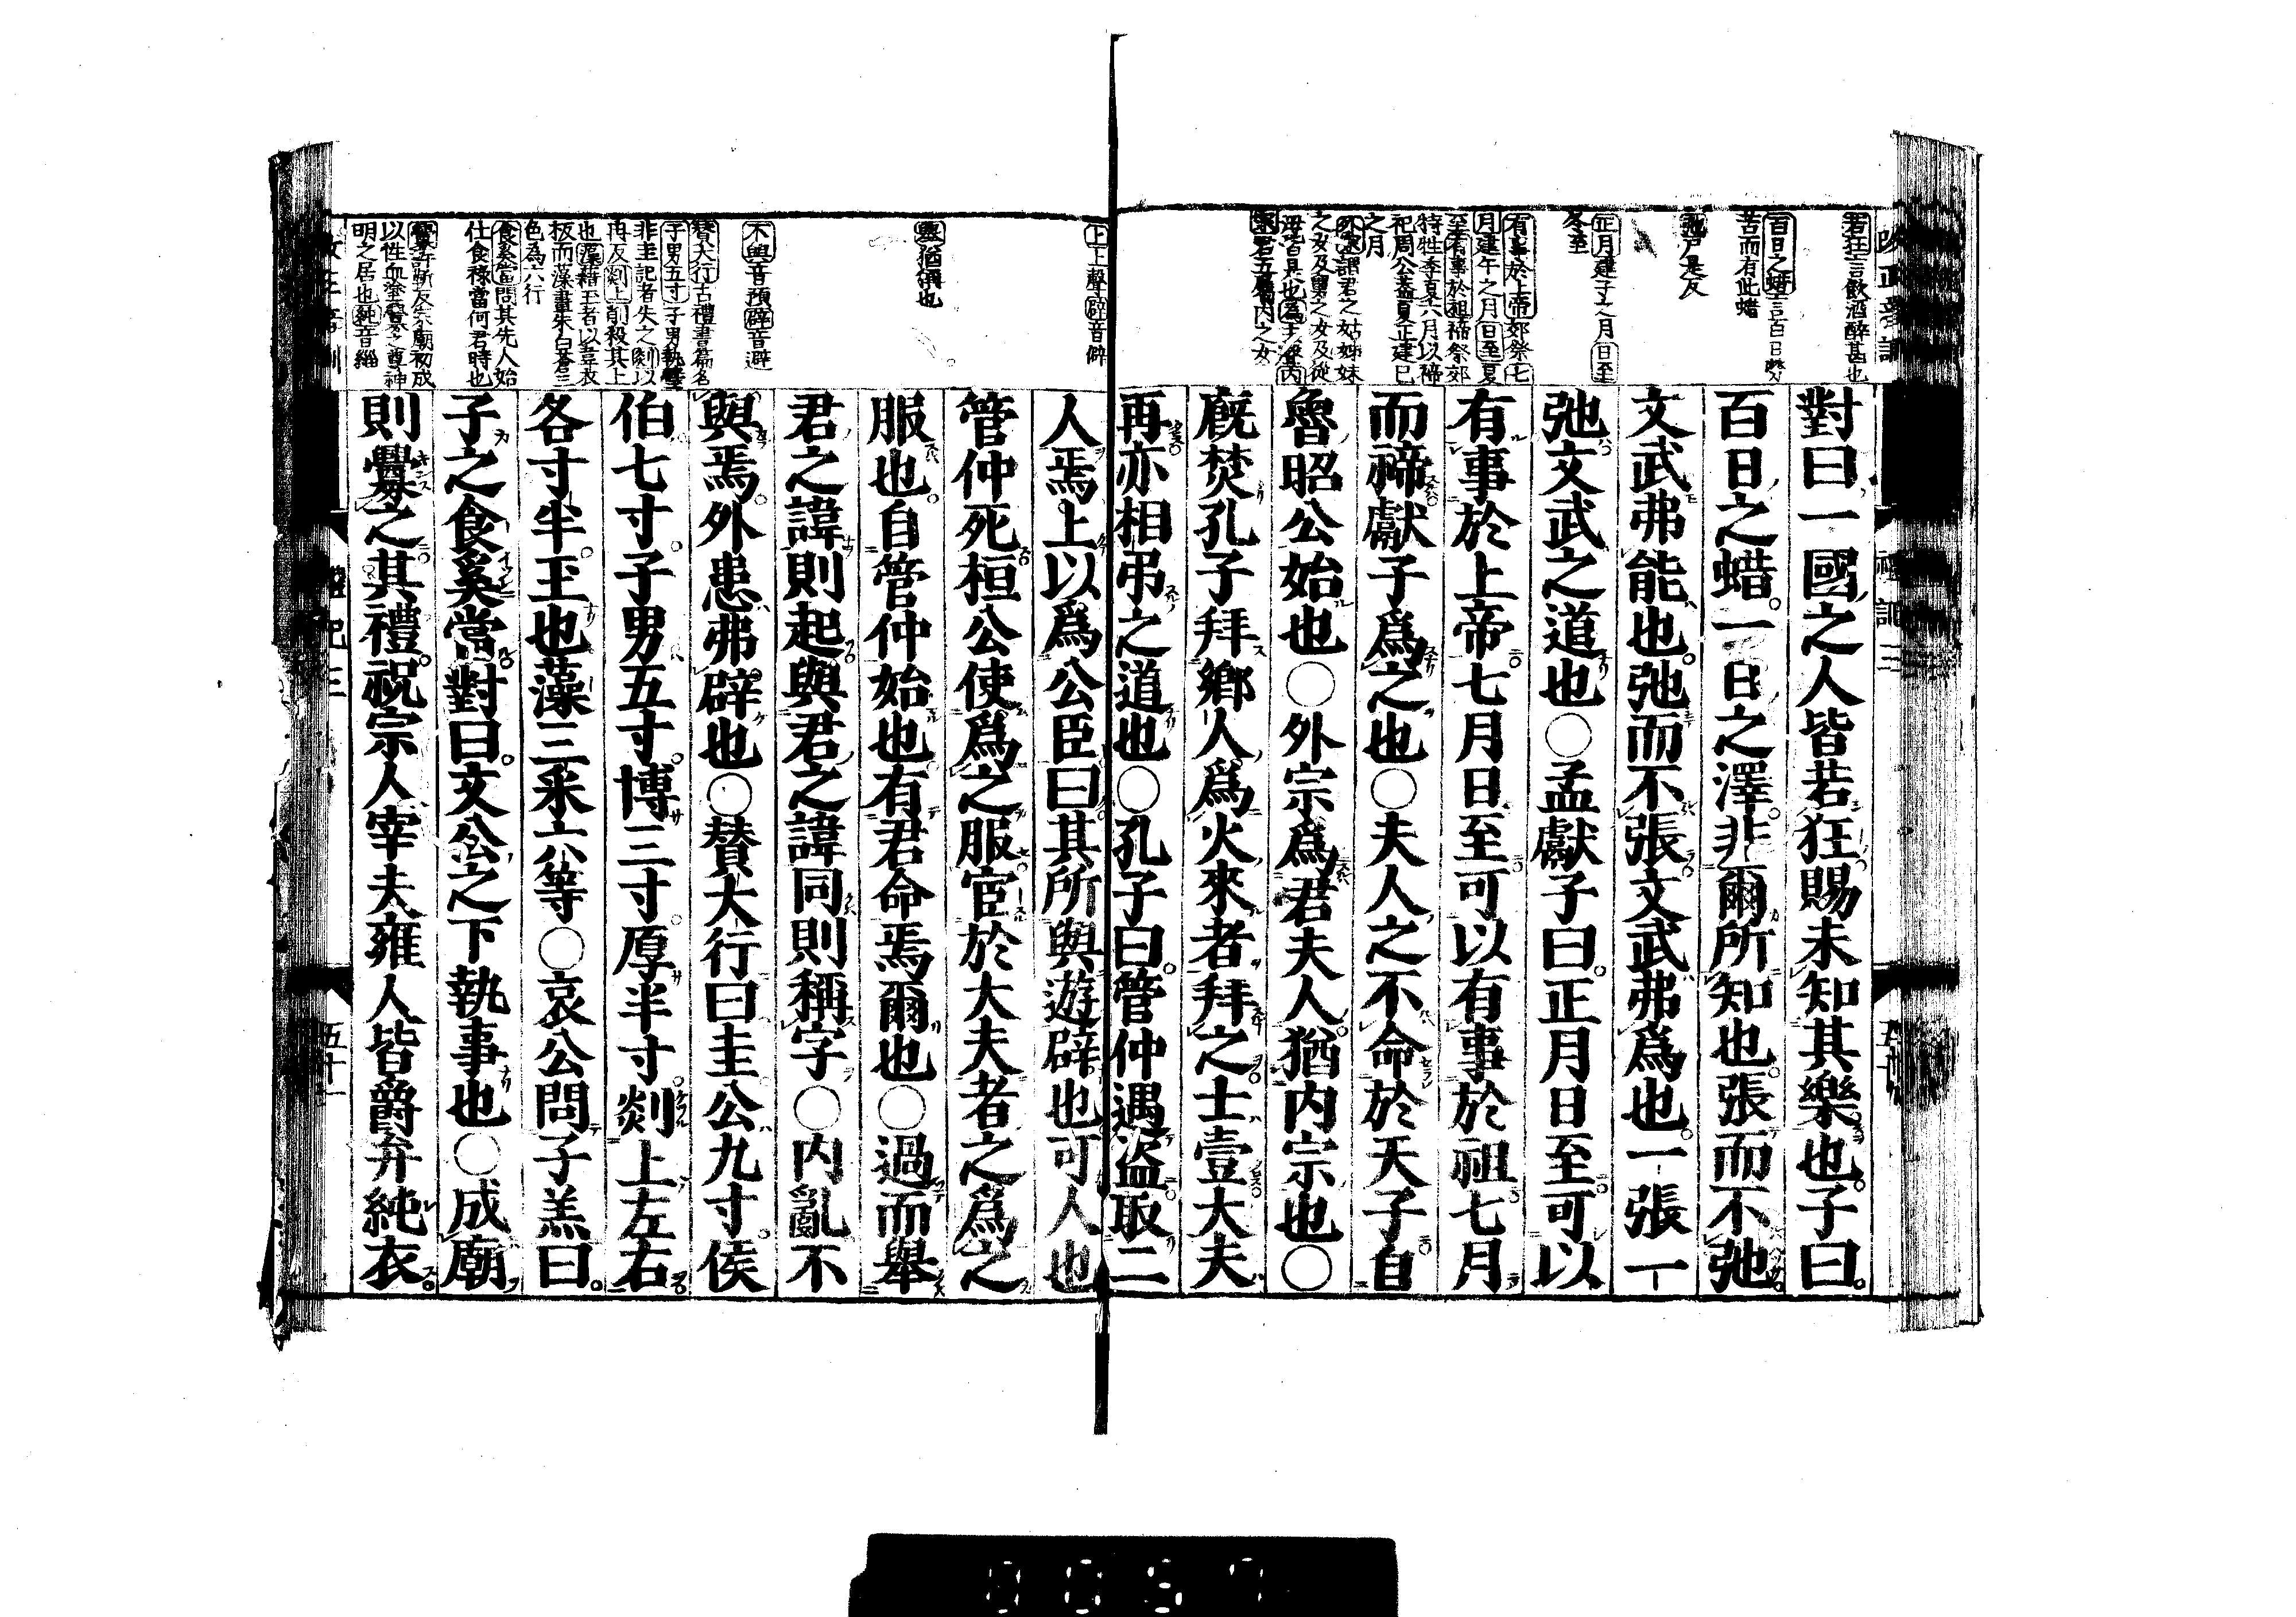 若狂言飲酒醉甚也
百日之蜡言百日勞
苦而有此蜡
弛尸是反
正月建子之月日至
冬至
有事於上帝郊祭七
月建午之月日至夏
至有事於祖禘祭郊
特牲季夏六月以禘
祀周公蓋夏正建巳
之月
外宗謂君之姑姊妹
之女及舅之女及從
母皆是也
對曰一國之人皆若狂賜未知其樂也子曰
百日之蜡一日之澤非爾所知也張而不弛
文武弗能也弛而不張文武弗爲也一張一
弛文武之道也○孟獻子曰正月日至可以
有事於上帝七月日至可以有事於祖七月
而禘獻子爲之也○夫人之不命於天子自
魯昭公始也○外宗爲君夫人猶内宗也○
廐焚孔子拜鄉人爲火來者拜之士壹大夫
再亦相弔之道也○孔子曰管仲遇盜取二
上上聲辟音僻
舉猶稱也
不與音預辟音避
贊大行古禮書篇名
子男五寸子男執璧
非圭記者失之剡以
冉反剡上削殺其上
也藻藉玉者以韋衣
板而藻畫朱白蒼三
色為六行
食奚當問其先人始
仕食祿當何君時也
釁許靳反宗廟初成
以牲血塗釁之尊神
明之居也純音緇
人焉上以爲公臣曰其所與遊辟也可人也
管仲死桓公使爲之服宦於大夫者之爲之
服也自管仲始也有君命焉爾也○過而舉
君之諱則起與君之諱同則稱字○内亂不
與焉外患弗辟也○贊大行曰圭公九寸侯
伯七寸子男五寸博三寸厚半寸剡上左右
各寸半玉也藻三采六等○哀公問子羔曰
子之食奚當對曰文公之下執事也○成廟
則釁之其禮祝宗人宰夫雍人皆爵弁純衣
禮記三
五十一